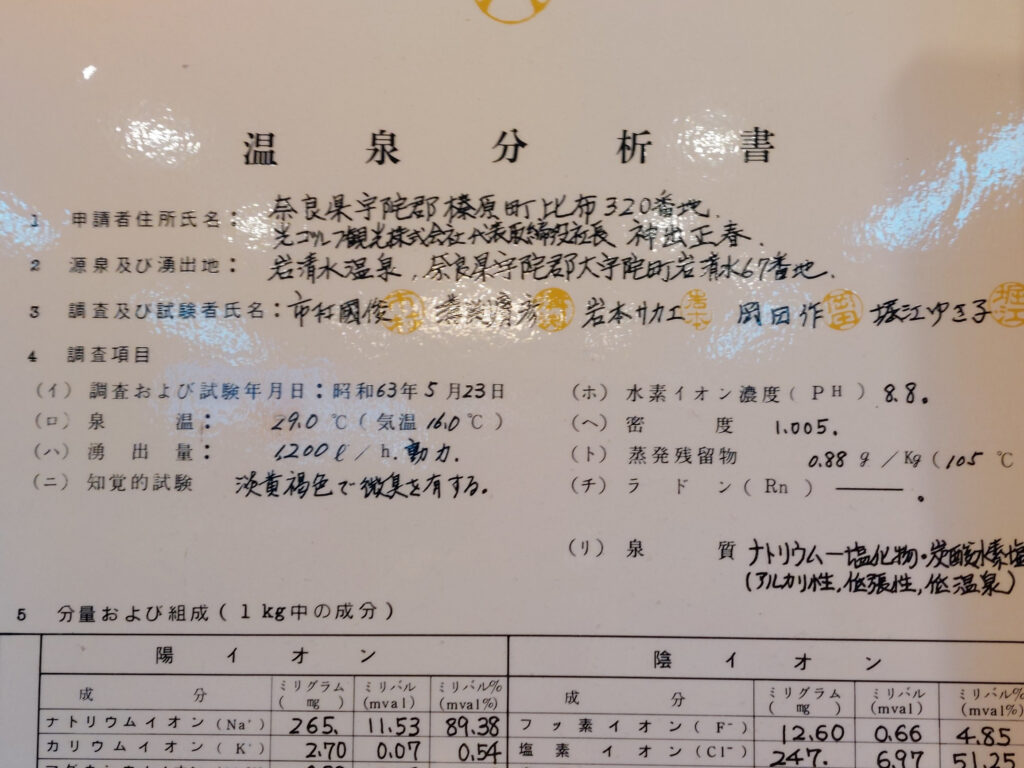 温泉分析書
1 申請者住所氏名： 奈良県宇陀郡榛原町比布320番地.
光ゴルフ観光株式会社 代表取締役社長 神出正春.
2 源泉及び湧出地： 岩清水温泉, 奈良県宇陀郡大宇陀町岩清水67番地.
3 調査及び試験者氏名： 市村國俊 岩本サカエ 岡田作 堀江ゆき子
4 調査項目
(イ) 調査および試験年月日：昭和63年5月23日
(ロ) 泉温： 29.0 ℃ (気温 16.0 ℃)
(ハ) 湧出量： 1,200 ℓ / h. 動力.
(ニ) 知覚的試験 淡黄褐色で微臭を有する。
(ホ) 水素イオン濃度 (PH) 8.8。
(ヘ) 密度 1.005.
(ト) 蒸発残留物 0.88 g / Kg (105 ℃
(チ) ラドン (Rn) ―――。
(リ) 泉質 ナトリウムー塩化物・炭酸水素塩
(アルカリ性, 低張性, 低温泉)
5 分量および組成 (1kg中の成分)
陽イオン
成分 ミリグラム (mg) ミリバル (mval) ミリバル% (mval%)
ナトリウムイオン (Na⁺) 265. 11.53 89.38
カリウムイオン (K⁺) 2.70 0.07 0.54
陰イオン
成分 ミリグラム (mg) ミリバル (mval) ミリバル% (mval%)
フッ素イオン (F⁻) 12.60 0.66 4.85
塩素イオン (Cl⁻) 247. 6.97 51.25